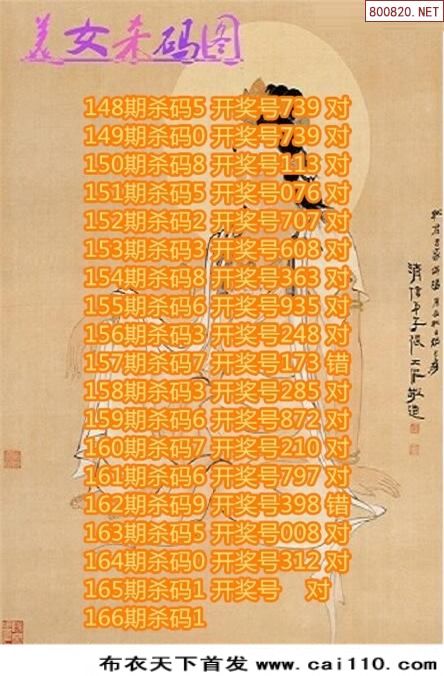 800820.NET
美女杀码图
148期杀码5 开奖号739 对
149期杀码0 开奖号739 对
150期杀码8 开奖号113 对
151期杀码5 开奖号076 对
152期杀码2 开奖号707 对
153期杀码3 开奖号608 对
154期杀码8 开奖号363 对
155期杀码6 开奖号935 对
156期杀码3 开奖号248 对
157期杀码7 开奖号173 错
158期杀码3 开奖号285 对
159期杀码6 开奖号872 对
160期杀码7 开奖号210 对
161期杀码6 开奖号797 对
162期杀码9 开奖号398 错
163期杀码5 开奖号008 对
164期杀码0 开奖号312 对
165期杀码1 开奖号 对
166期杀码1
布衣天下首发 www.cai110.com